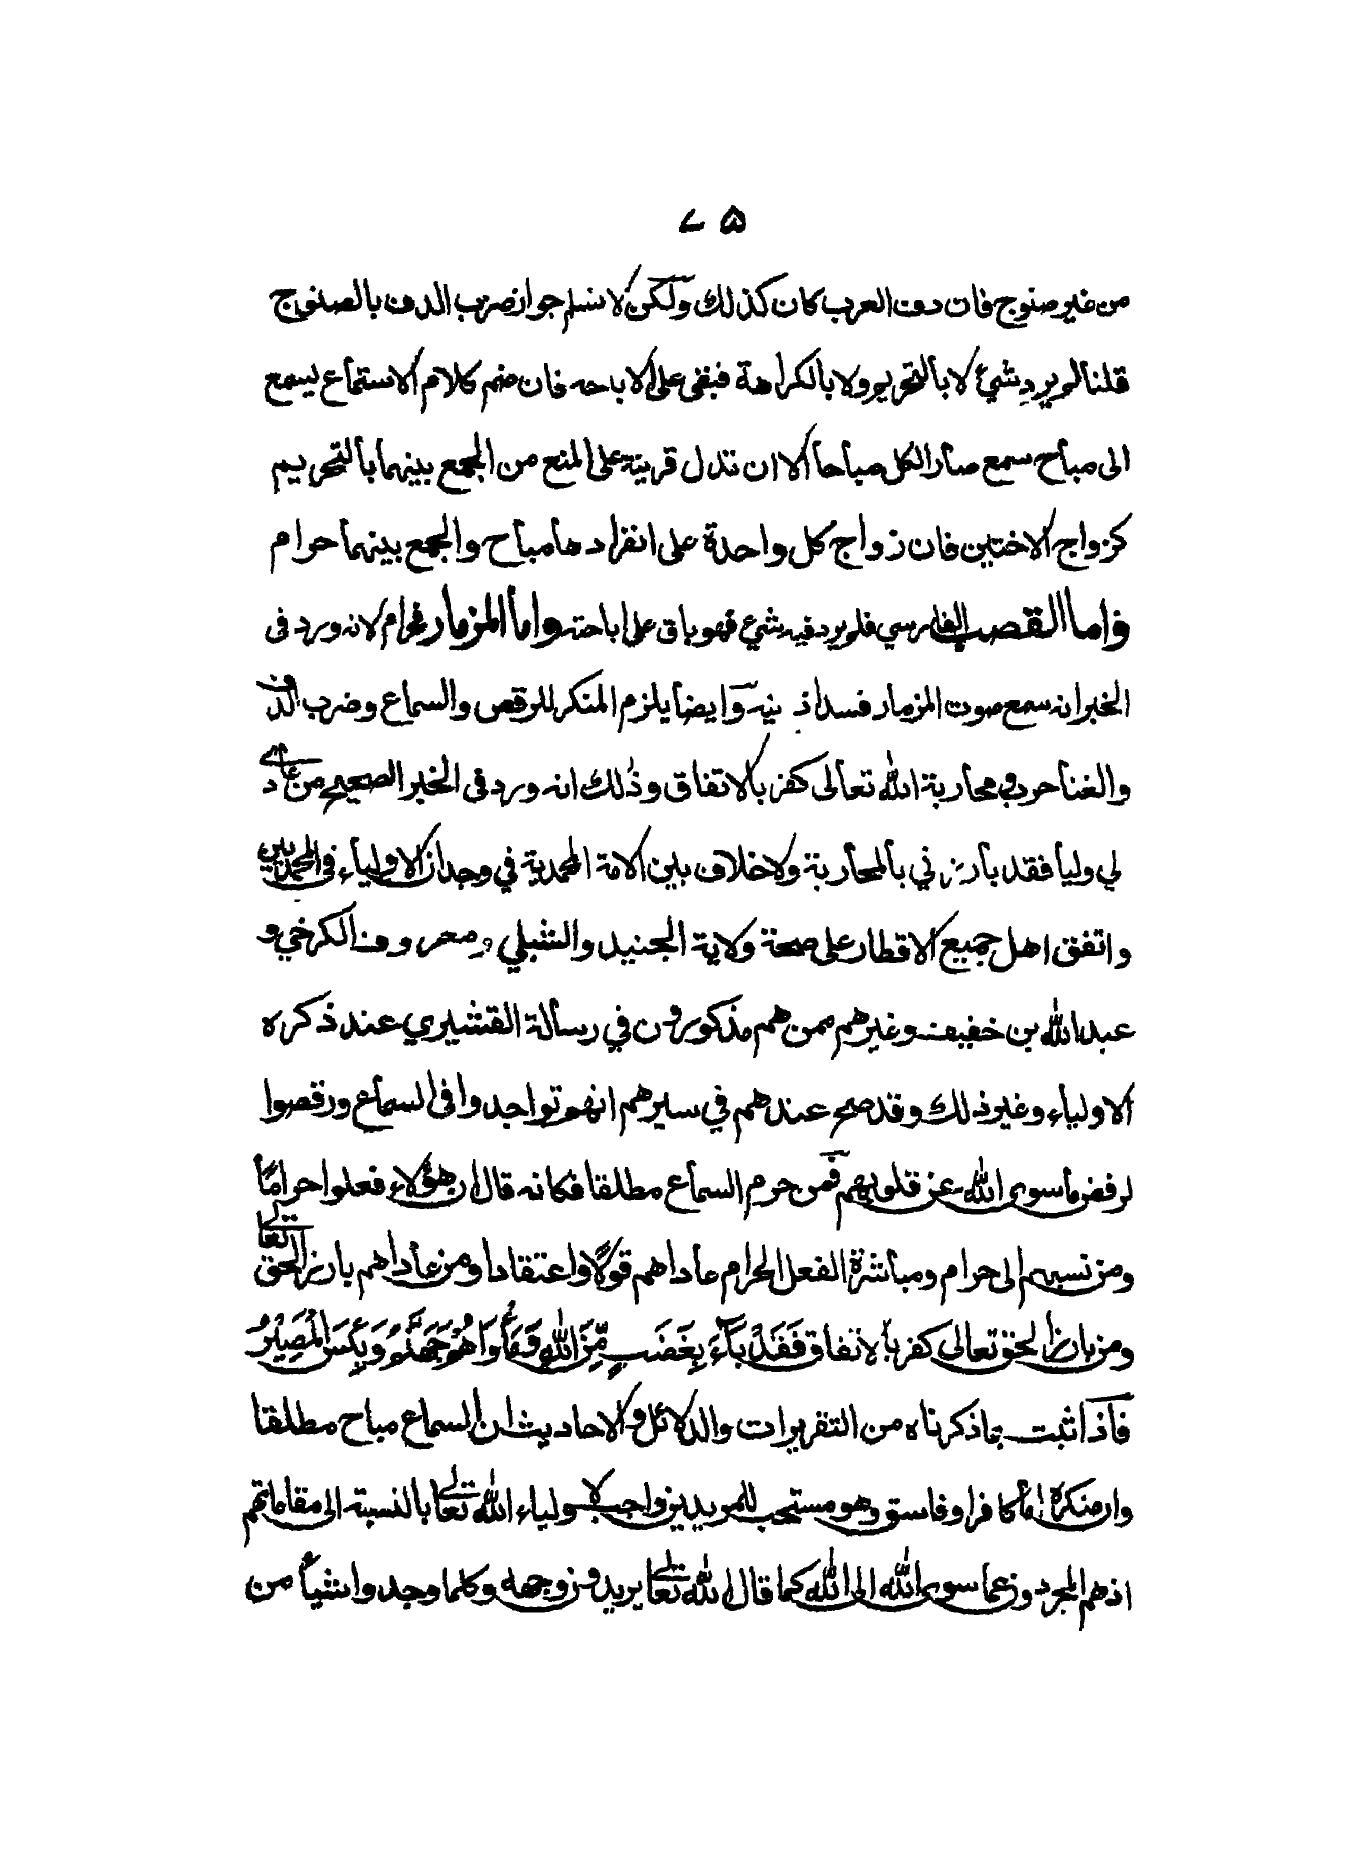 ۷۵
من غير صنوج فان دف العرب كان كذلك ولكن لا نسلم جواز ضرب الدف بالصنوج
قلنا لم يرد شيئ لا بالتحريم ولا بالكراهة فبقى على الاباحه فان ضم كلام الاستماع ليسمع
الى مباح سمع صار الكل مباحا الا ان تدل قرينة على المنع من الجمع بينهما بالتحريم
كزواج الاختين فان زواج كل واحدة على انفرادها مباح والجمع بينهما حرام
واما القصب الفارسي فلم يرد فيه شيء فهو باق على اباحته واما المزمار فحرام لانه ورد فى
الخبر انه سمع صوت المزمار فسد اذنيه وايضا يلزم المنكر للرقص والسماع وضرب الدف
والغنا حرد فى محاربة الله تعالى كفر بالاتفاق وذلك انه ورد فى الخبر الصحيح من عادى
لي وليا فقد بارزني بالمحاربة ولا خلاف بين الامة المحمدية في وجدان الاولياء فى المحمديين
واتفق اهل جميع الاقطار على صحة ولاية الجنيد والشبلي ومعروف الكرخي و
عبد الله بن خفيف وغيرهم ممن هم مذكورون في رسالة القشيري عند ذكره
الاولياء وغير ذلك وقد صح عندهم في سيرهم انهم تواجدوا فى السماع ورقصوا
لرفض ما سوى الله عن قلوبهم فمن حرم السماع مطلقا فكانه قال ان هؤلاء فعلوا حرامًا
ومن نسبهم الى حرام ومباشرة الفعل الحرام عاداهم قولًا واعتقادا ومن عاداهم بارز الحق تعالى
ومن بارز الحق تعالى كفر بالاتفاق فَقَدْ بَآءَ بِغَضَبٍ مِّنَ اللهِ وَمَأْوَاهُ جَهَنَّمُ وَبِئْسَ الْمَصِيْرُ
فاذا ثبت بما ذكرناه من التقريرات والدلائل والاحاديث ان السماع مباح مطلقا
وان منكره اما كافر او فاسق وهو مستحب للمريدين واجب لاولياء الله تعالى بالنسبة الى مقاماتهم
اذ هم المجردون عما سوى الله الى الله كما قال الله تعالى يريدون وجهه وكلما وجدوا شيأ من